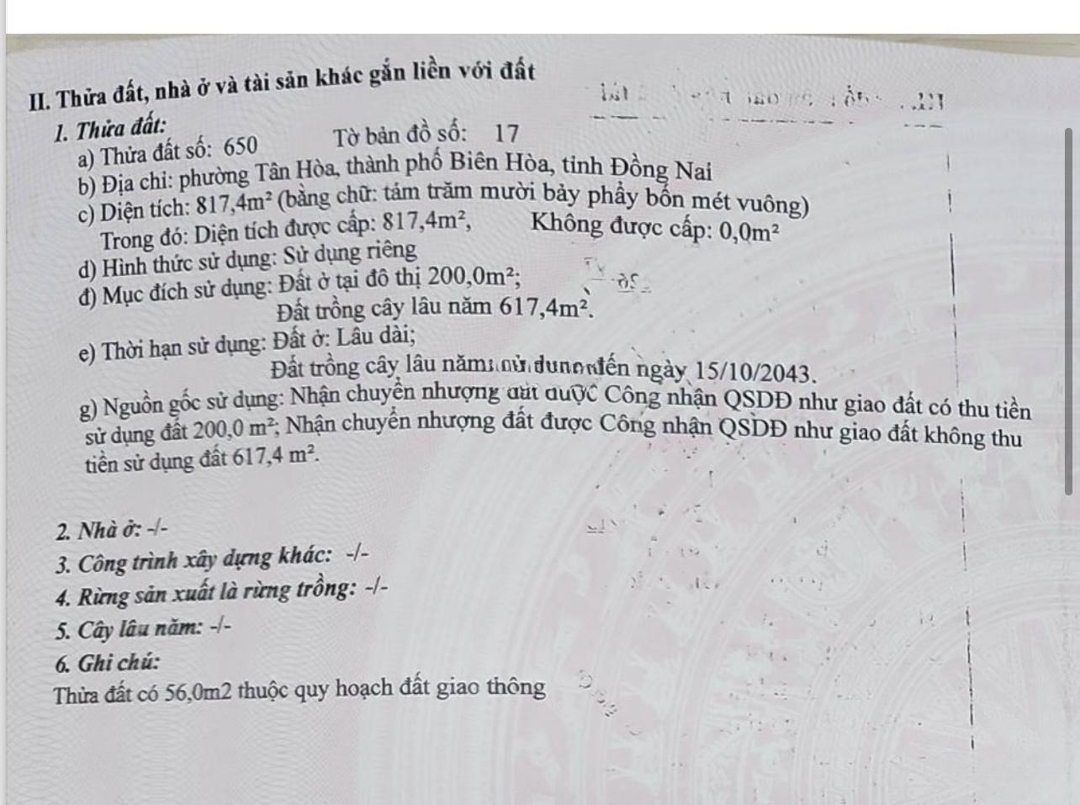 II. Thửa đất, nhà ở và tài sản khác gắn liền với đất
1. Thửa đất:
a) Thửa đất số: 650 Tờ bản đồ số: 17
b) Địa chỉ: phường Tân Hòa, thành phố Biên Hòa, tỉnh Đồng Nai
c) Diện tích: 817,4m² (bằng chữ: tám trăm mười bảy phẩy bốn mét vuông)
Trong đó: Diện tích được cấp: 817,4m², Không được cấp: 0,0m²
d) Hình thức sử dụng: Sử dụng riêng
đ) Mục đích sử dụng: Đất ở tại đô thị 200,0m²;
Đất trồng cây lâu năm 617,4m².
e) Thời hạn sử dụng: Đất ở: Lâu dài;
Đất trồng cây lâu năm: sử dụng đến ngày 15/10/2043.
g) Nguồn gốc sử dụng: Nhận chuyển nhượng đất được Công nhận QSDĐ như giao đất có thu tiền
sử dụng đất 200,0 m²; Nhận chuyển nhượng đất được Công nhận QSDĐ như giao đất không thu
tiền sử dụng đất 617,4 m².
2. Nhà ở: -/-
3. Công trình xây dựng khác: -/-
4. Rừng sản xuất là rừng trồng: -/-
5. Cây lâu năm: -/-
6. Ghi chú:
Thửa đất có 56,0m2 thuộc quy hoạch đất giao thông